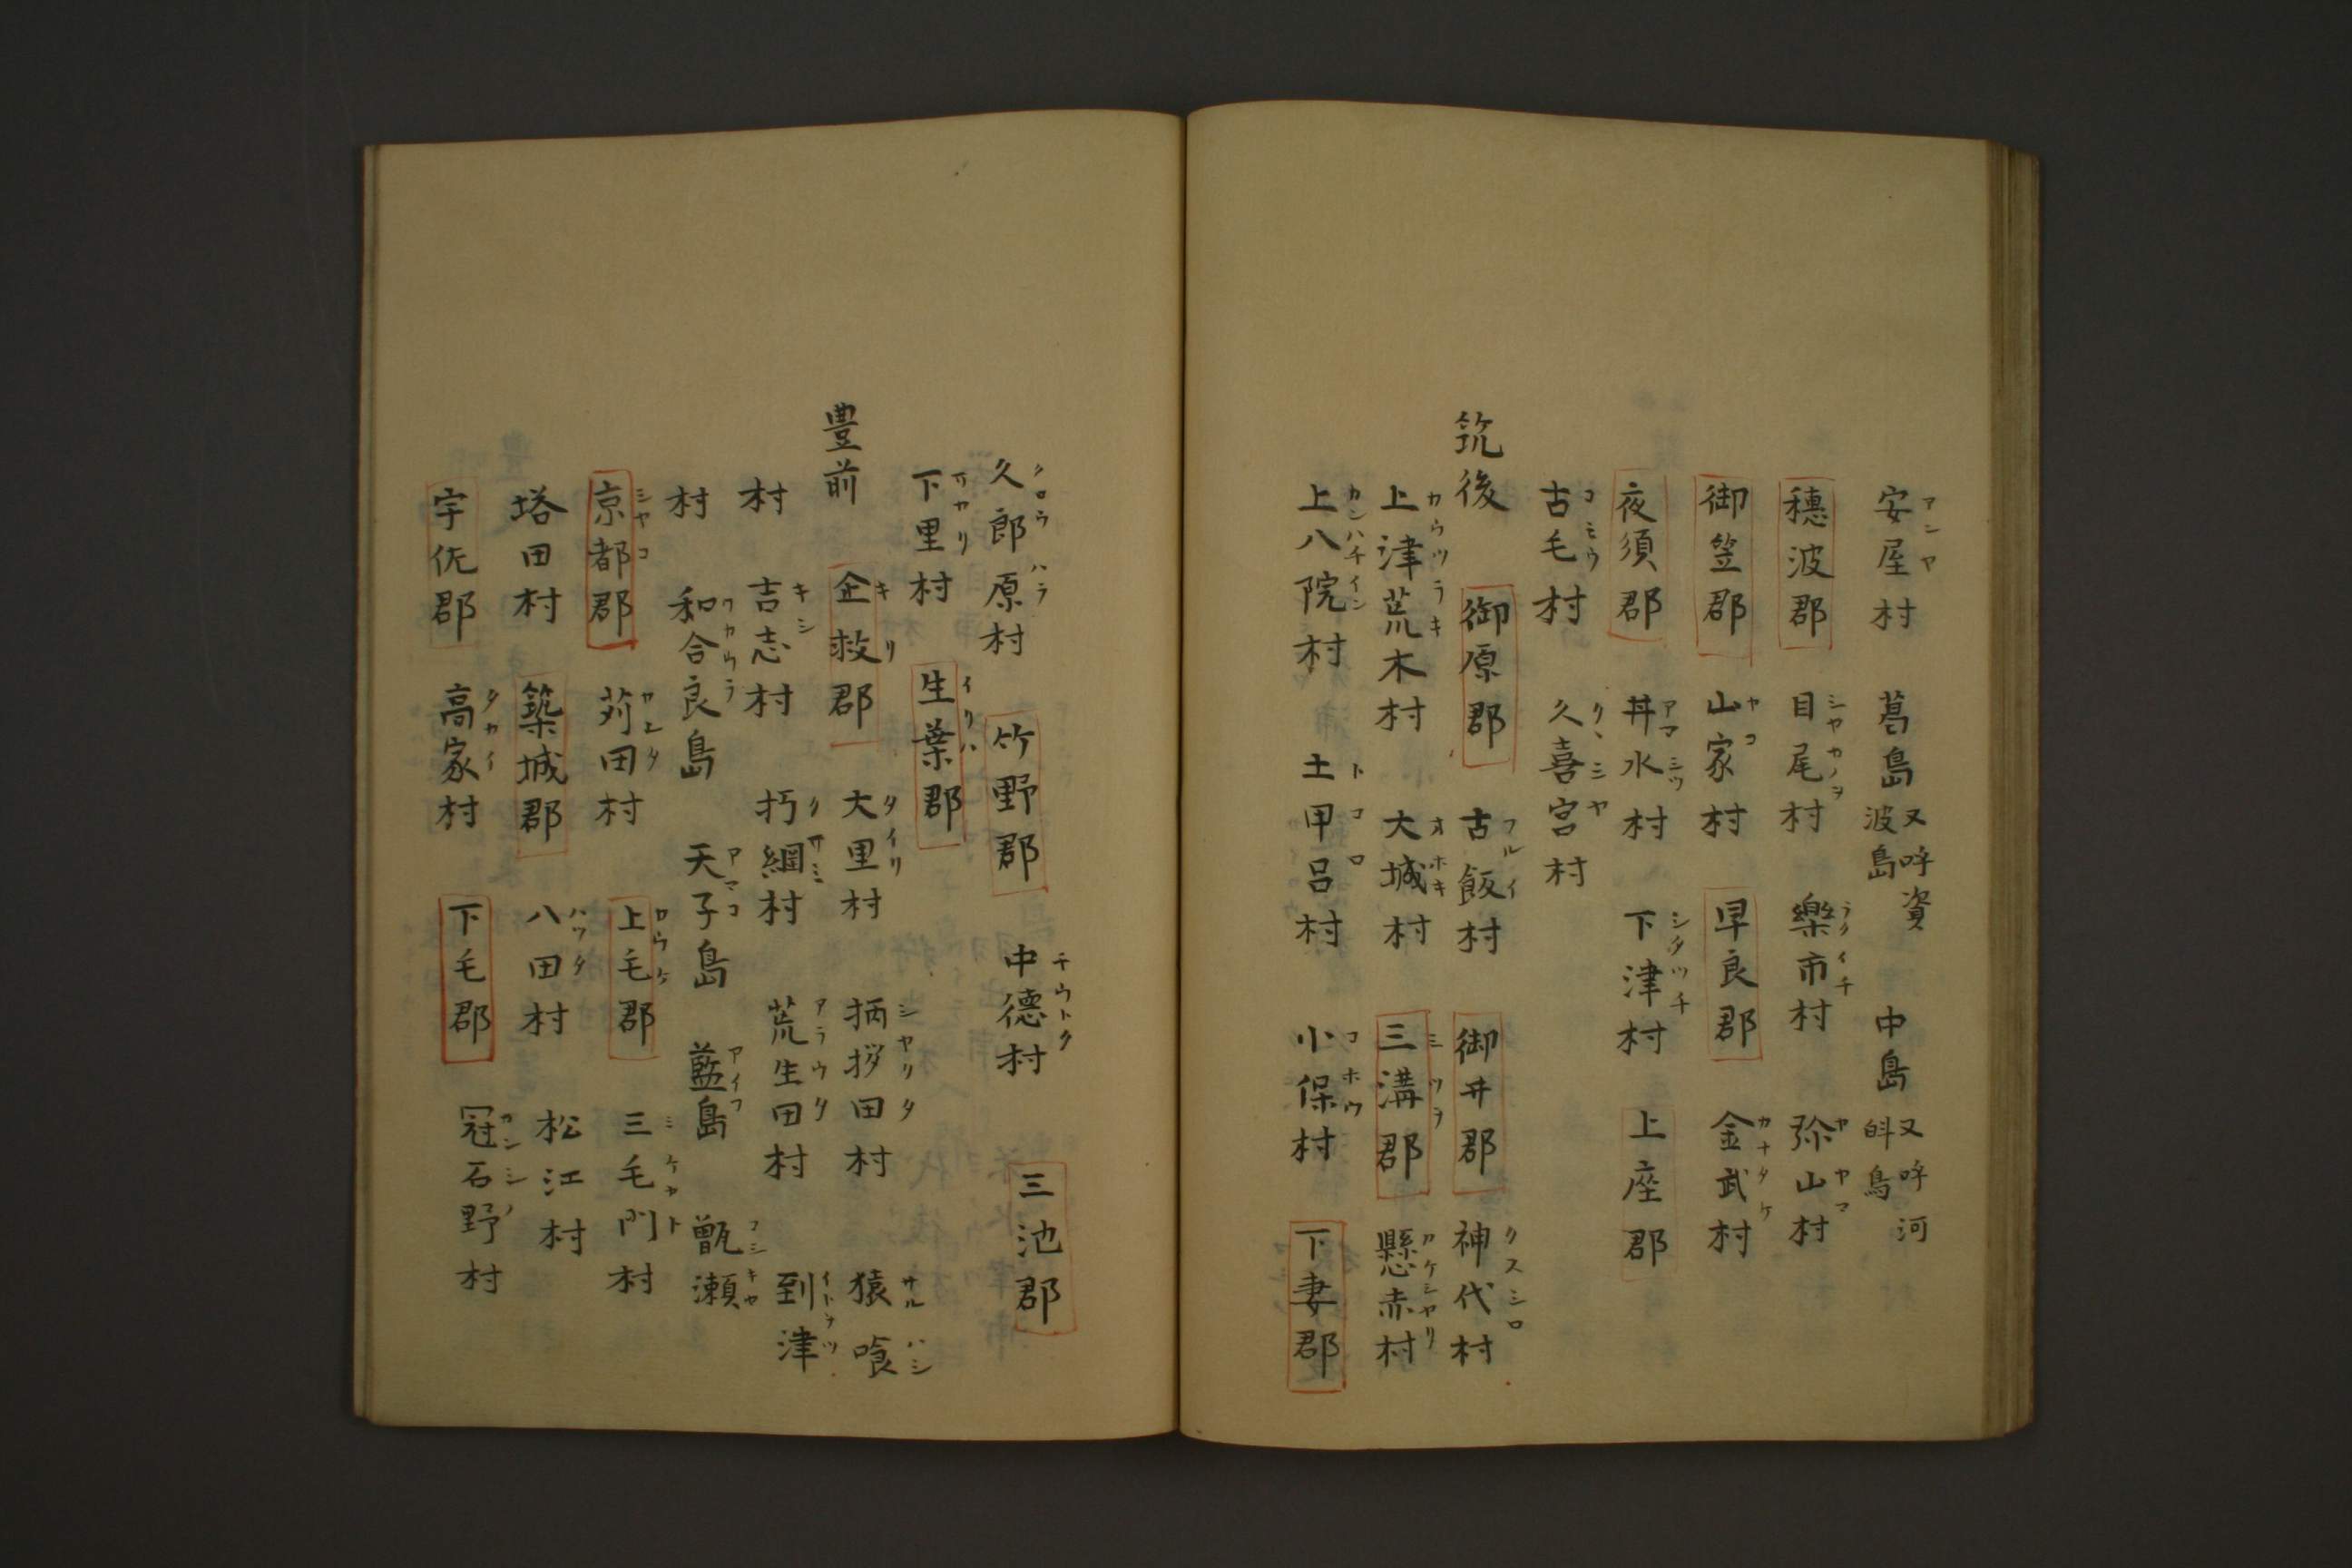 安屋村 葛島 又呼資波島 中島 又呼河𪧶島
穗波郡 目尾村 樂市村 弥山村
御笠郡 山家村 早良郡 金武村
夜須郡 丼水村 下津村 上座郡
古毛村 久喜宮村
筑後 御原郡 古飯村 御井郡 神代村
上津荒木村 大城村 三溝郡 懸赤村
上八院村 土甲呂村 小保村 下妻郡
久郎原村 竹野郡 中德村 三池郡
下里村 生葉郡
豊前 企救郡 大里村 柄拶田村 猿喰
村 吉志村 朽綱村 荒生田村 到津
村 和合良島 天子島 藍島 甑瀬
京都郡 苅田村 上毛郡 三毛門村
塔田村 築城郡 八田村 松江村
宇佐郡 高家村 下毛郡 冠石野村